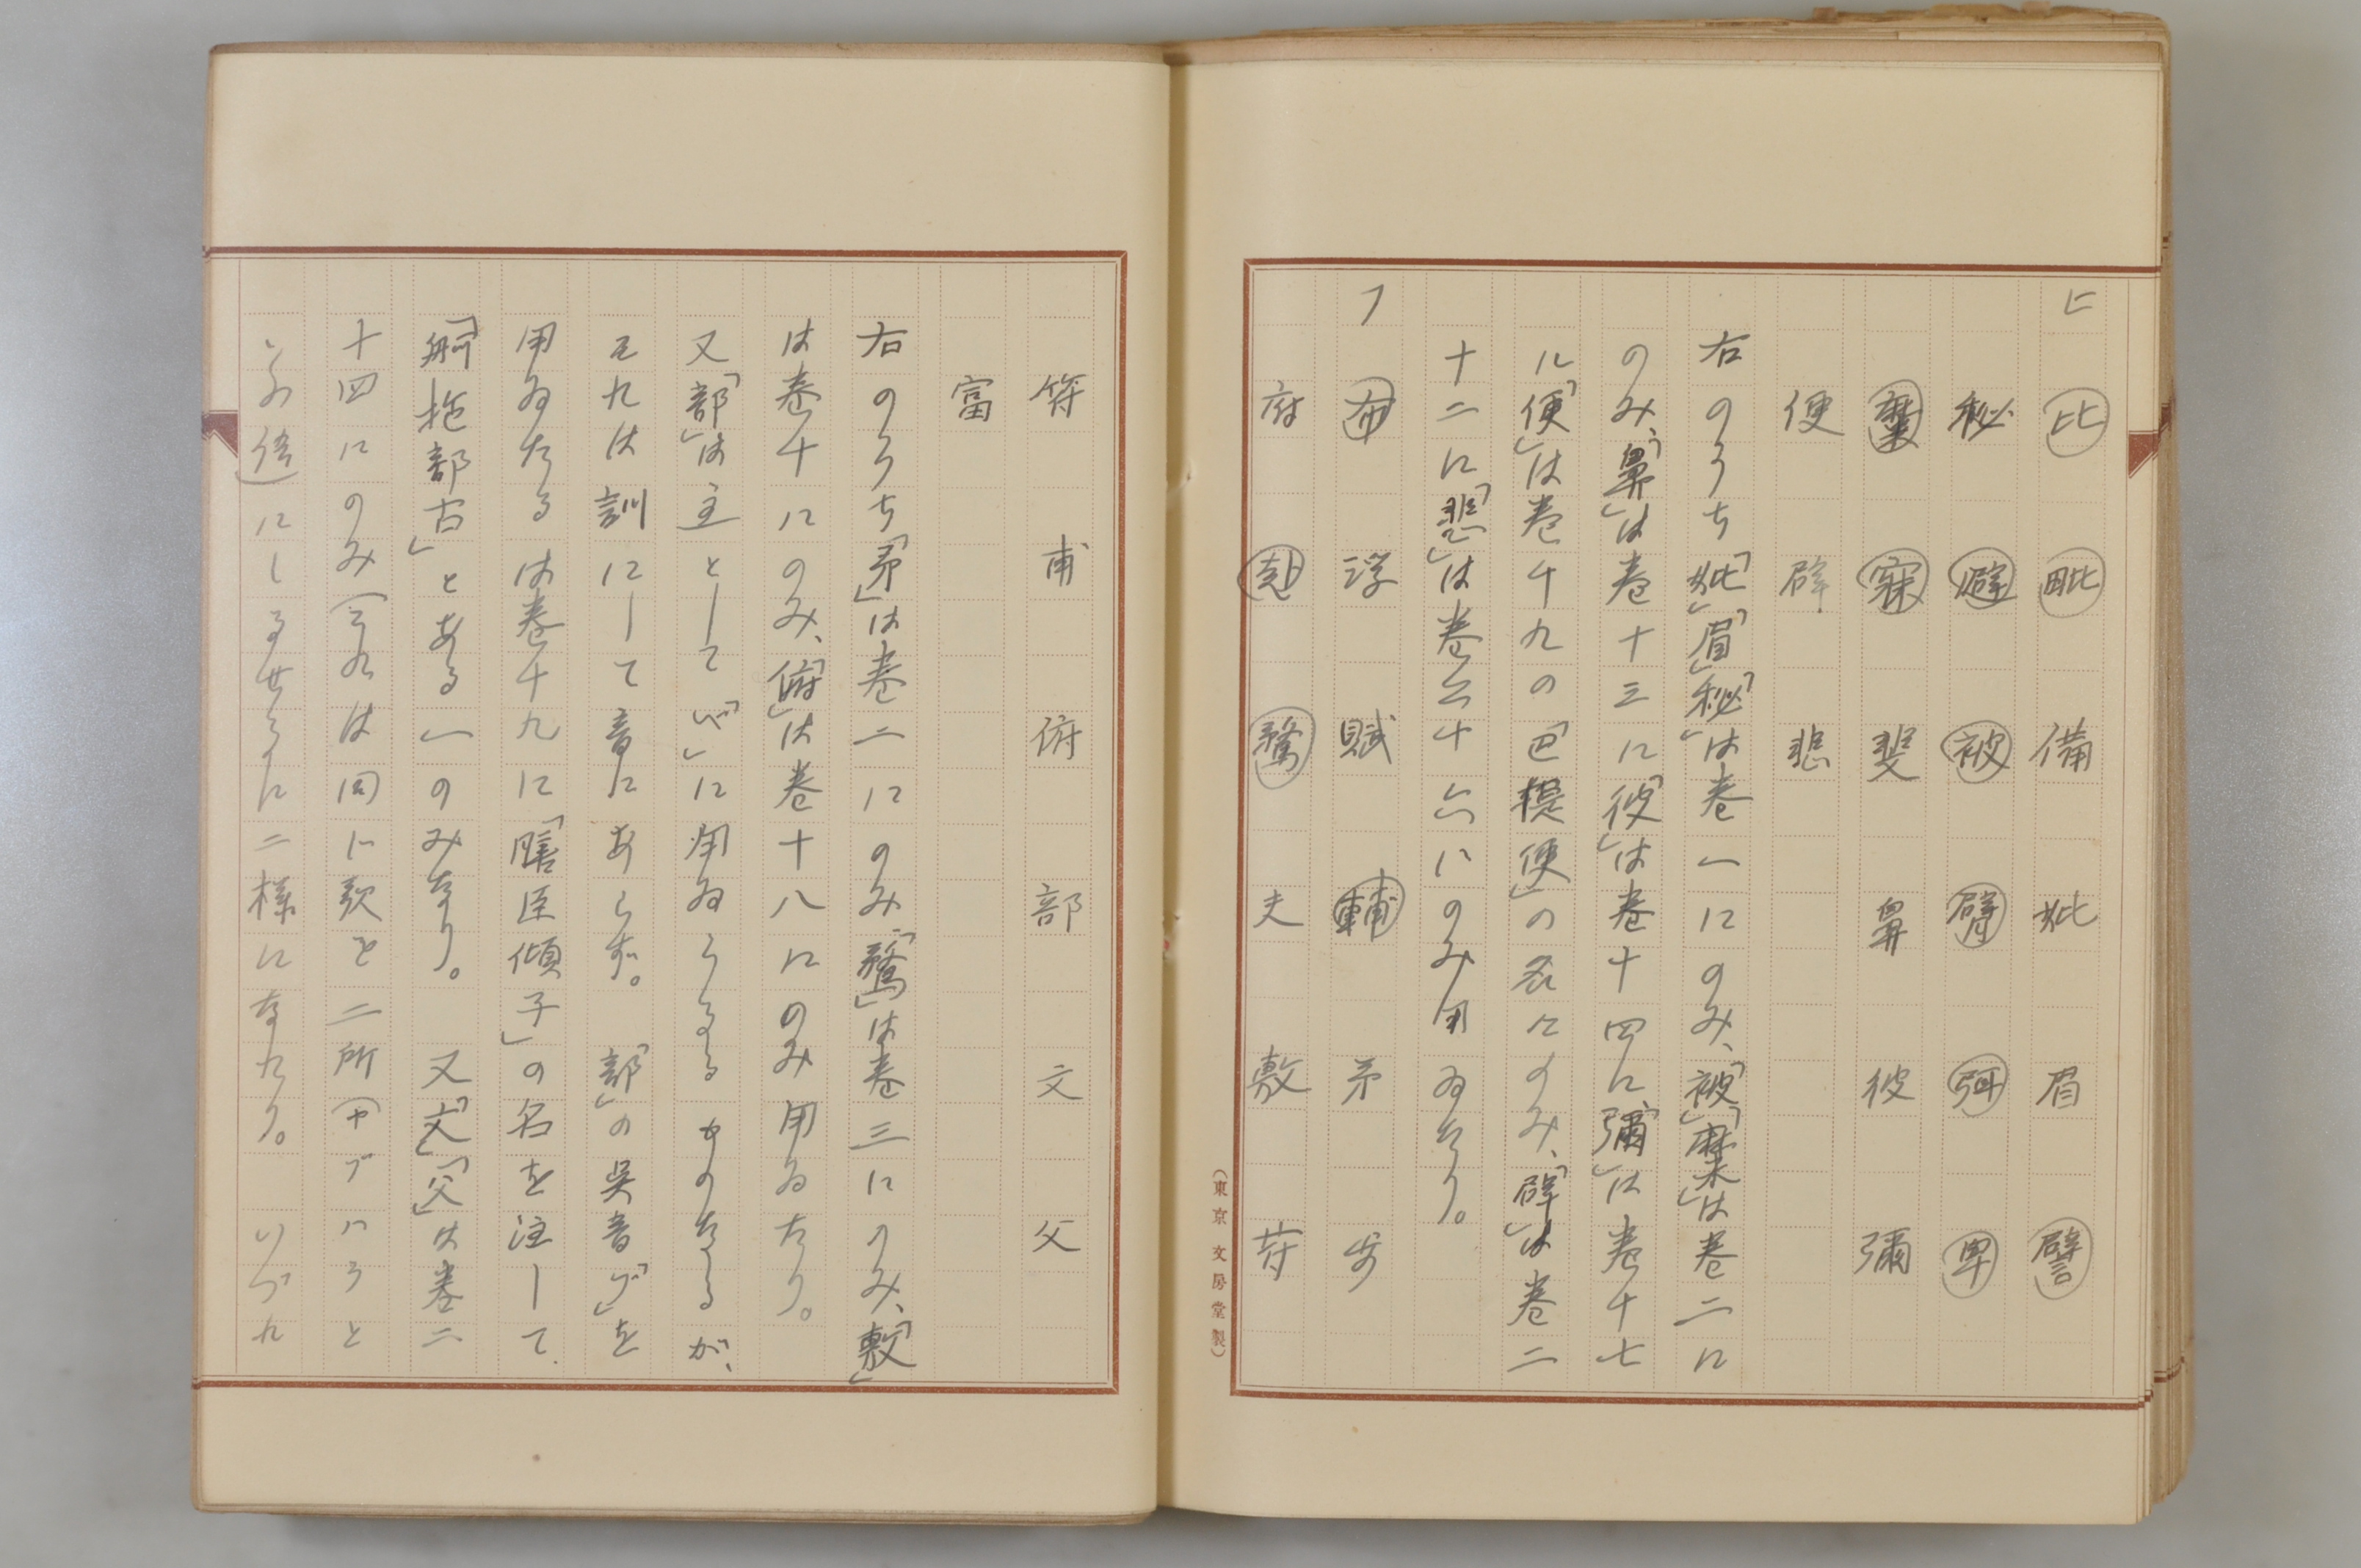 ヒ
比 毗 備 妣 眉 譬
秘 避 被 臂 弭 卑
糜 寐 斐 鼻 彼 彌
便 辟 悲
右のうち「妣」「眉」「秘」は巻一にのみ、「被」「糜」は巻二に
のみ、「鼻」は巻十三に「彼」は巻十四に「彌」は巻十七
に「便」は巻十九の「巴提便」の名にのみ、「辟」は巻二
十二に「悲」は巻二十六にのみ用ゐたり。
フ
布 浮 賦 輔 矛 步
府 赴 騖 夫 敷 苻
(東京 文房堂製)
符 甫 俯 部 文 父
富
右のうち「矛」は巻二にのみ、「騖」は巻三にのみ、「敷」
は巻十にのみ、「俯」は巻十八にのみ用ゐたり。
又「部」は主として「べ」に用ゐらるるものなるが、
それは訓にして音にあらず。「部」の呉音「ブ」を
用ゐたるは巻十九に「膳臣傾子」の名を注して
「舸拕部古」とある一のみなり。 又「文」「父」は巻二
十四にのみ(それは同じ歌を二所(ヤブハラと
いふ語)にしるせるに二様になれり。 いづれ